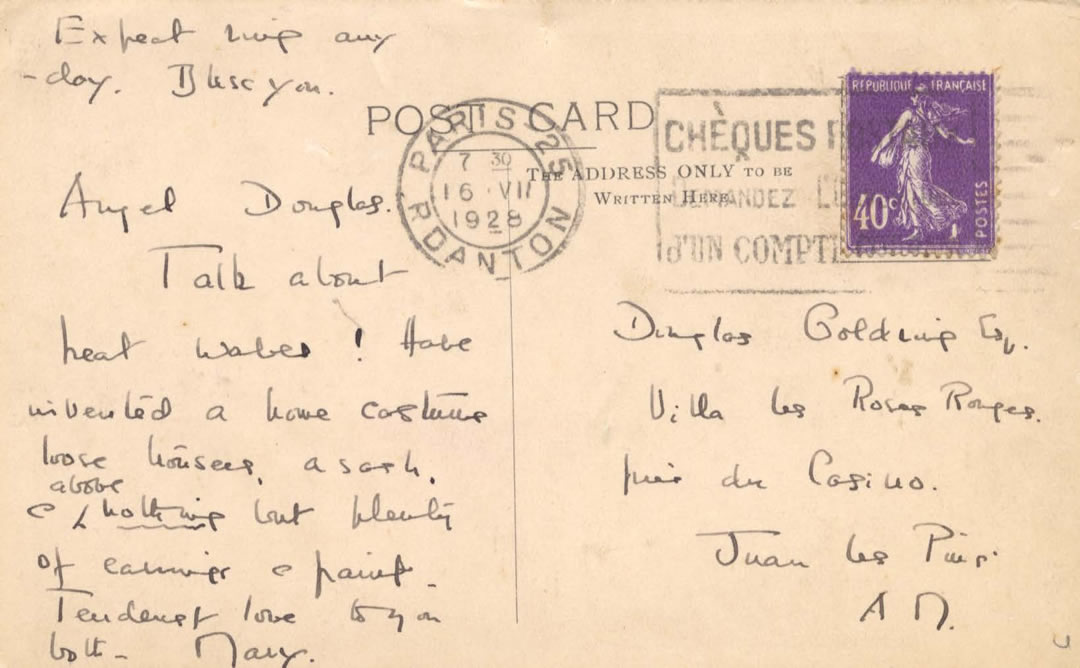 Expect ring any
-day. Bless you.
POST CARD
THE ADDRESS ONLY TO BE
WRITTEN HERE.
PARIS 25
7 30
16 VII
1928
R. DANTON
CHÈQUES
DEMANDEZ
D'UN COMPTE
REPUBLIQUE FRANÇAISE
40c
POSTES
Angel Douglas.
Talk about
heat waves! Have
invented a home costume
loose trousers, a sash,
above
& nothing but plenty
of earrings & paint.
Tenderest love to you
both - Mary.
Douglas Goldring Esq.
Villa les Roses Rouges.
près du Casino.
Juan les Pins.
A M.